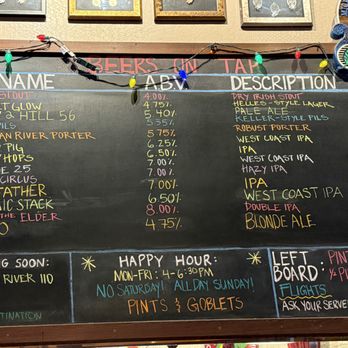 BEERS ON TAP
NAME ABV DESCRIPTION
STOUT 4.00% DRY IRISH STOUT
GLOW 4.75% HELLES-STYLE LAGER
2 HILL 56 5.40% PALE ALE
PILS 5.35% KELLER-STYLE PILS
RIVER PORTER 5.75% ROBUST PORTER
PIG 6.25% WEST COAST IPA
HOPS 6.50% IPA
25 7.00% WEST COAST IPA
CIRCUS 7.00% HAZY IPA
7.00% IPA
STACK 6.50% WEST COAST IPA
THE ELDER 8.00% DOUBLE IPA
4.75% BLONDE ALE
SOON:
RIVER 110
HAPPY HOUR:
MON-FRI: 4-6:30PM
NO SATURDAY! ALL DAY SUNDAY!
PINTS & GOBLETS
LEFT
BOARD:
FLIGHTS
ASK YOUR